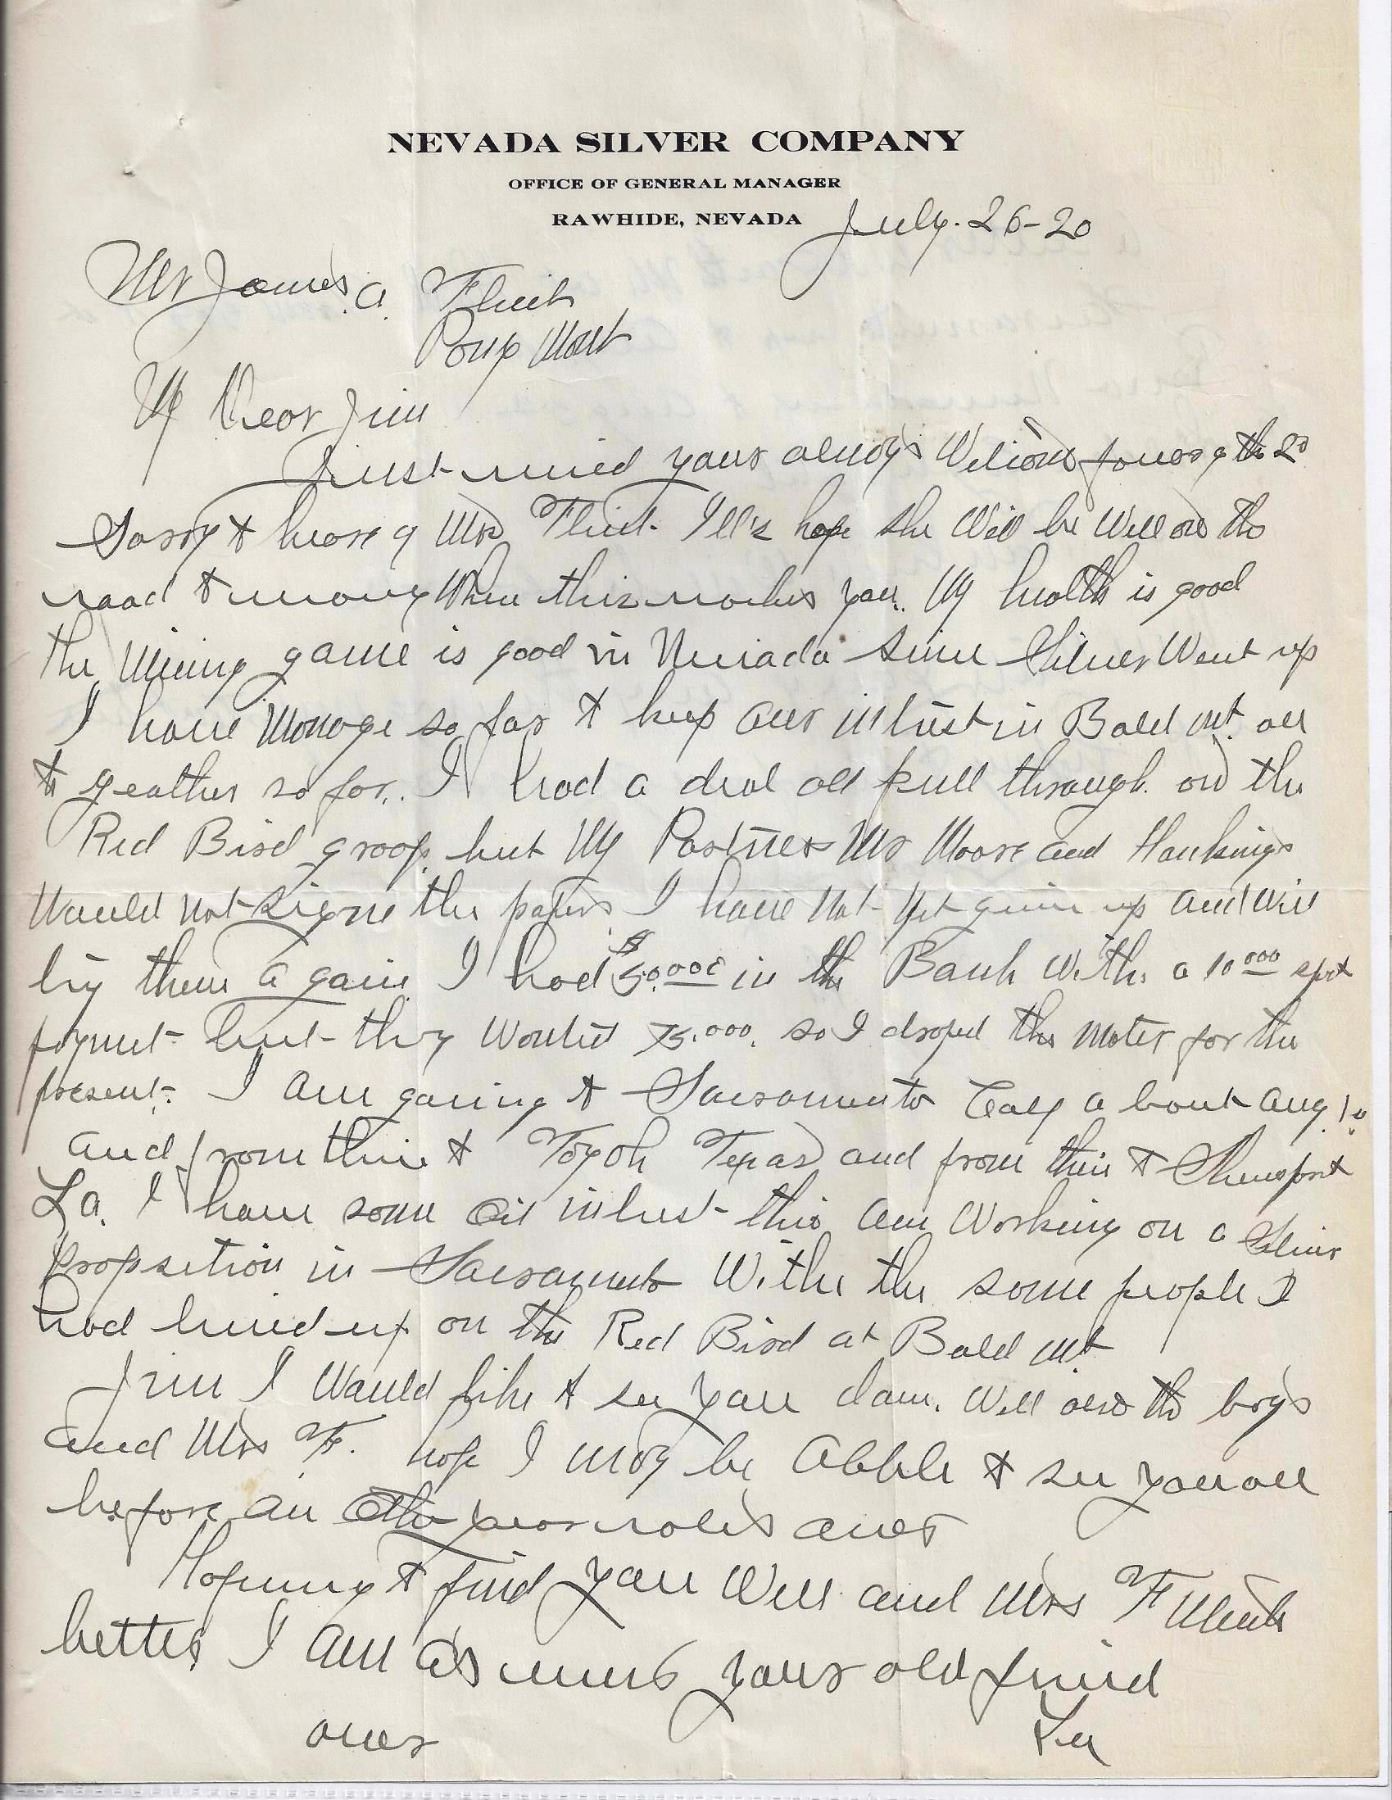 NEVADA SILVER COMPANY
OFFICE OF GENERAL MANAGER
RAWHIDE, NEVADA July. 26-20
Mr James. A. Flint
Pony Mont
My Dear Jim
Just your always Welcome of the 20
Sorry to hear of Mrs Flint. I'll hope she Will be Well on the
road to When this you. My health is good
the Mining game is good in Nevada since Silver Went up
I have Monoge so far to keep our intrust in Bald Mt. all
to geather so far. I had a deal all pull through on the
Red Bird groop. but My Partners Mr Moore and Hankings
Would not signe the papers I have Not yet given up and Will
try them again I had $50.000 in the Bank With a 10 000 spot
payment but they Wonted 75.000. so I droped the Mater for the
present. I am goring to Sacramento Caly a bout Aug. 10.
and from thire to Toyoh Texas and from thire to Shreveport
La. I have some Oil intrust thire am Working on a Silver
Propsition in Sacramento Withe the same people I
had lined up on the Red Bird at Bald Mt
Jim I Would like to see you dam. Well also the boys
and Mrs F. hope I may be Abble to see you all
before an other year roles over
Hopeing to find you Well and Mrs Flint
better I am as ever your old friend
over Lu